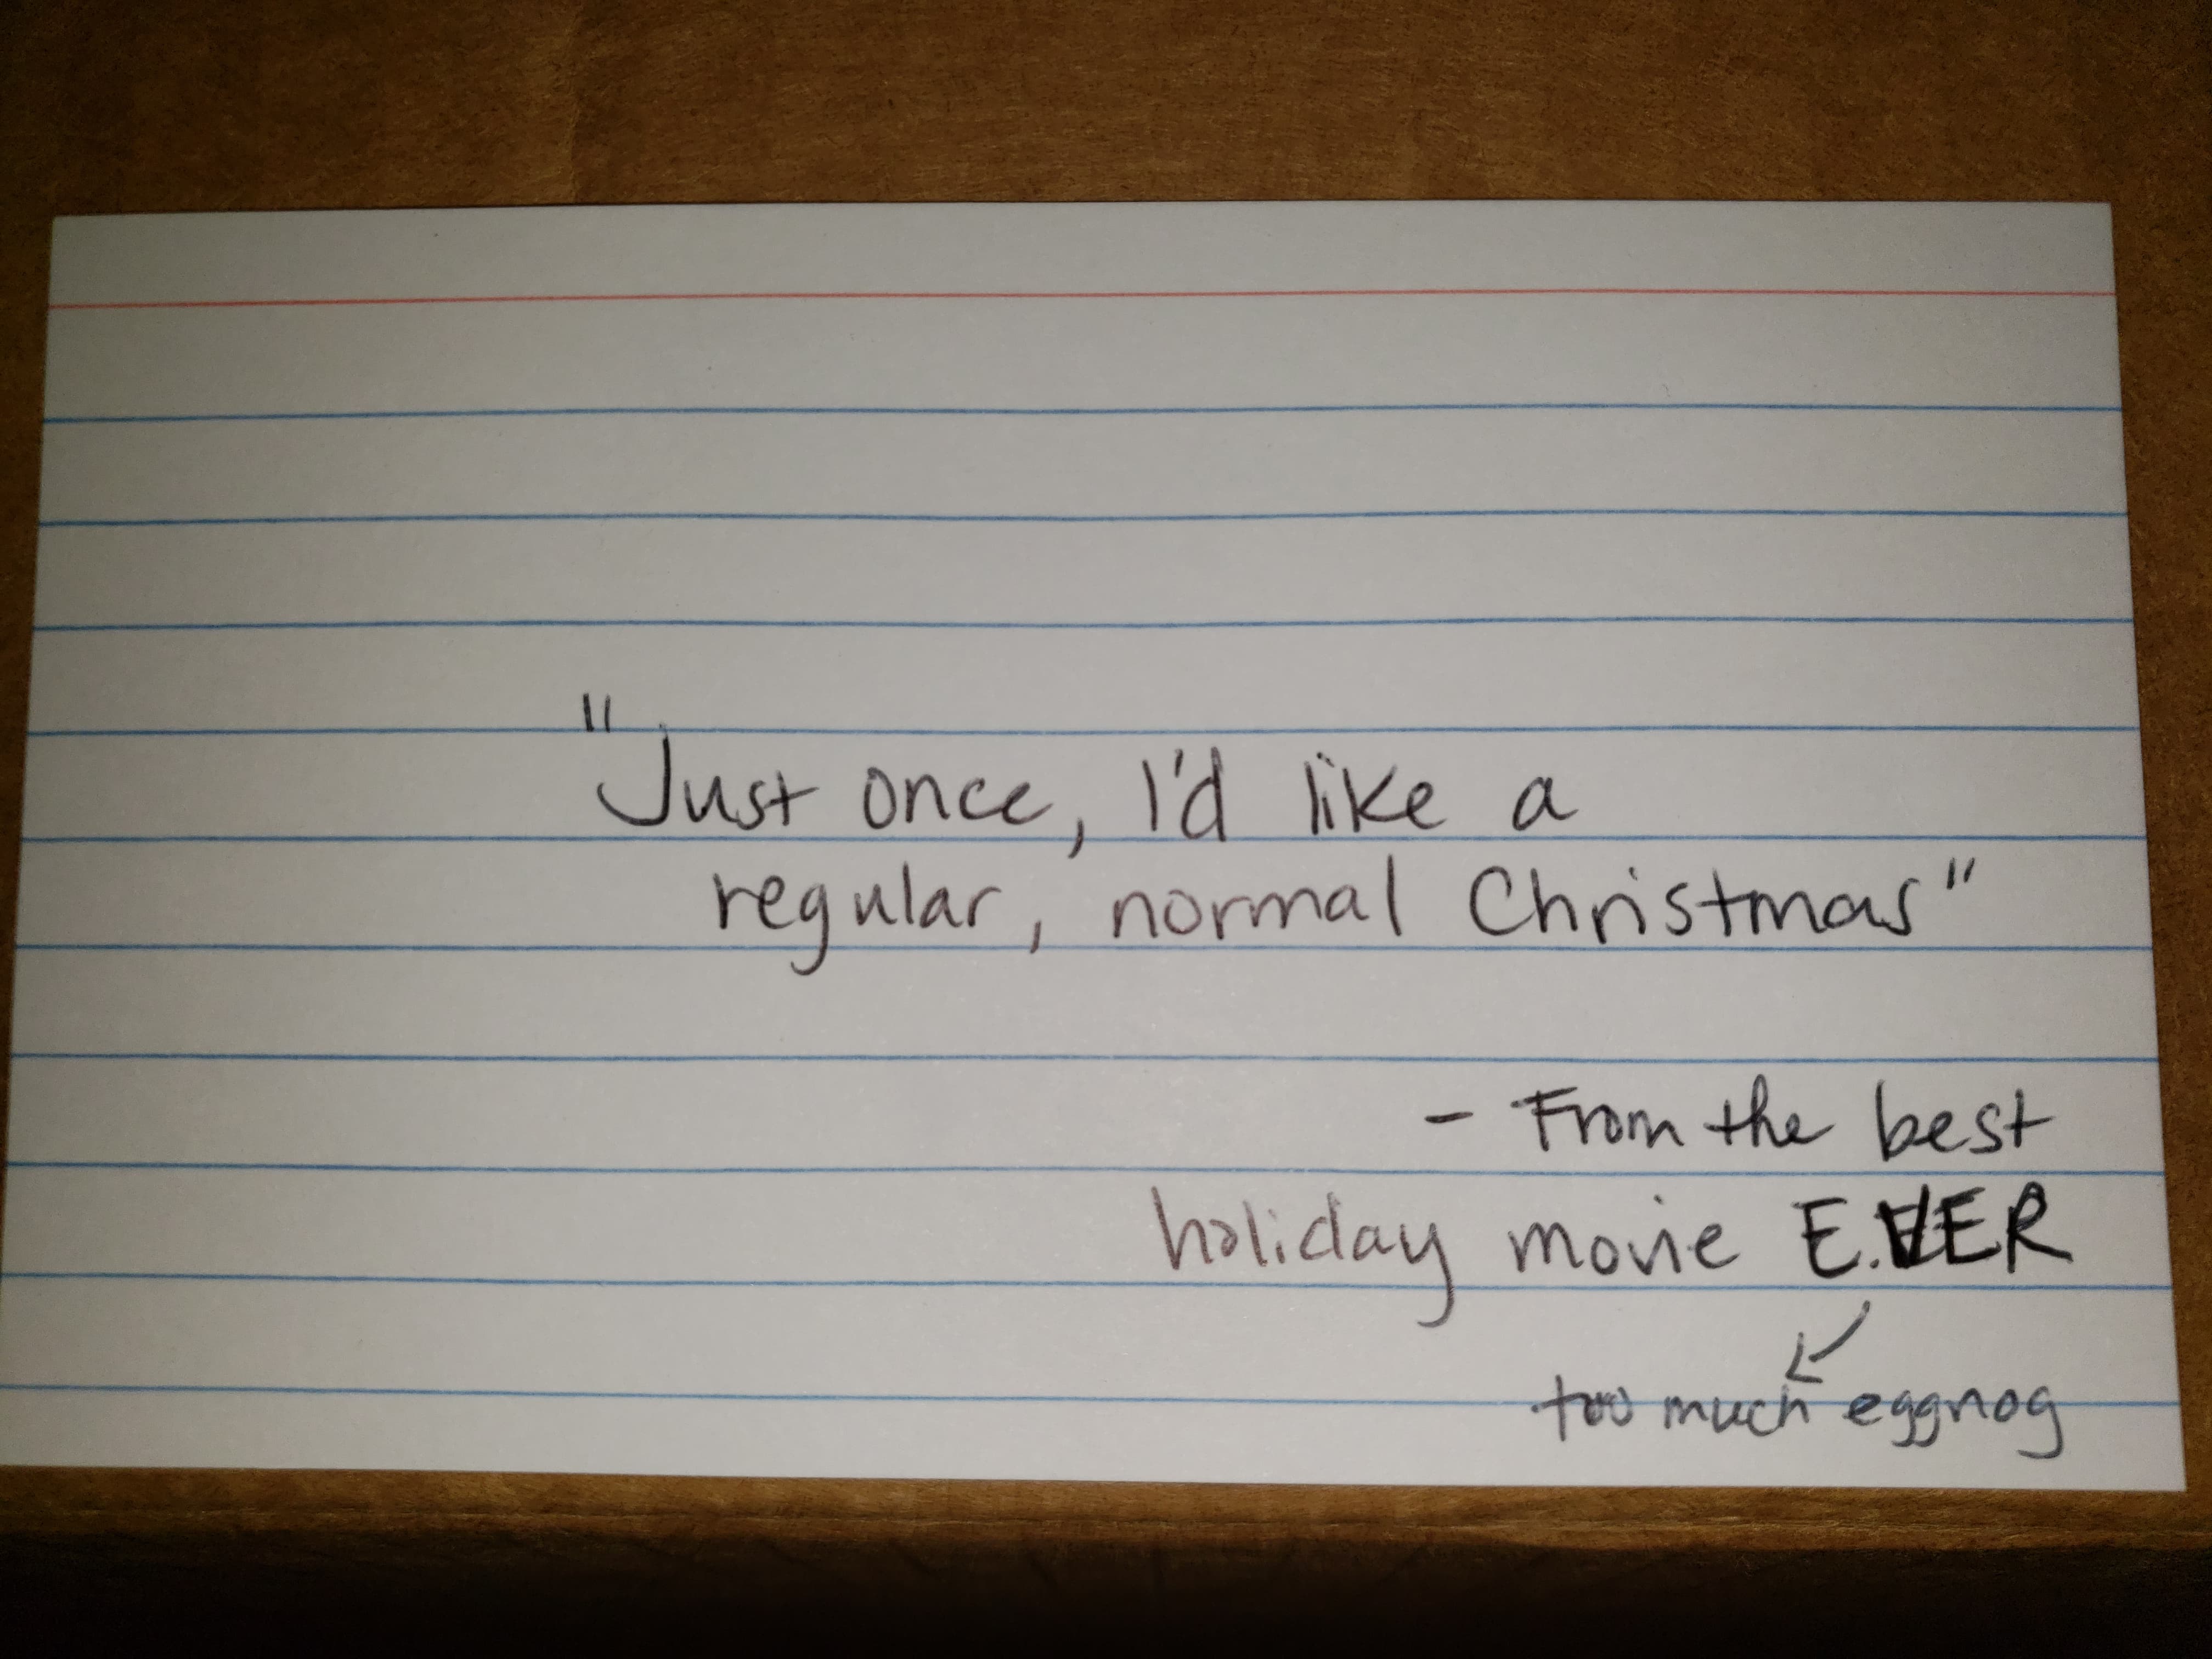 "Just once, I'd like a
regular, normal Christmas"
- From the best
holiday movie E.VER
too much eggnog